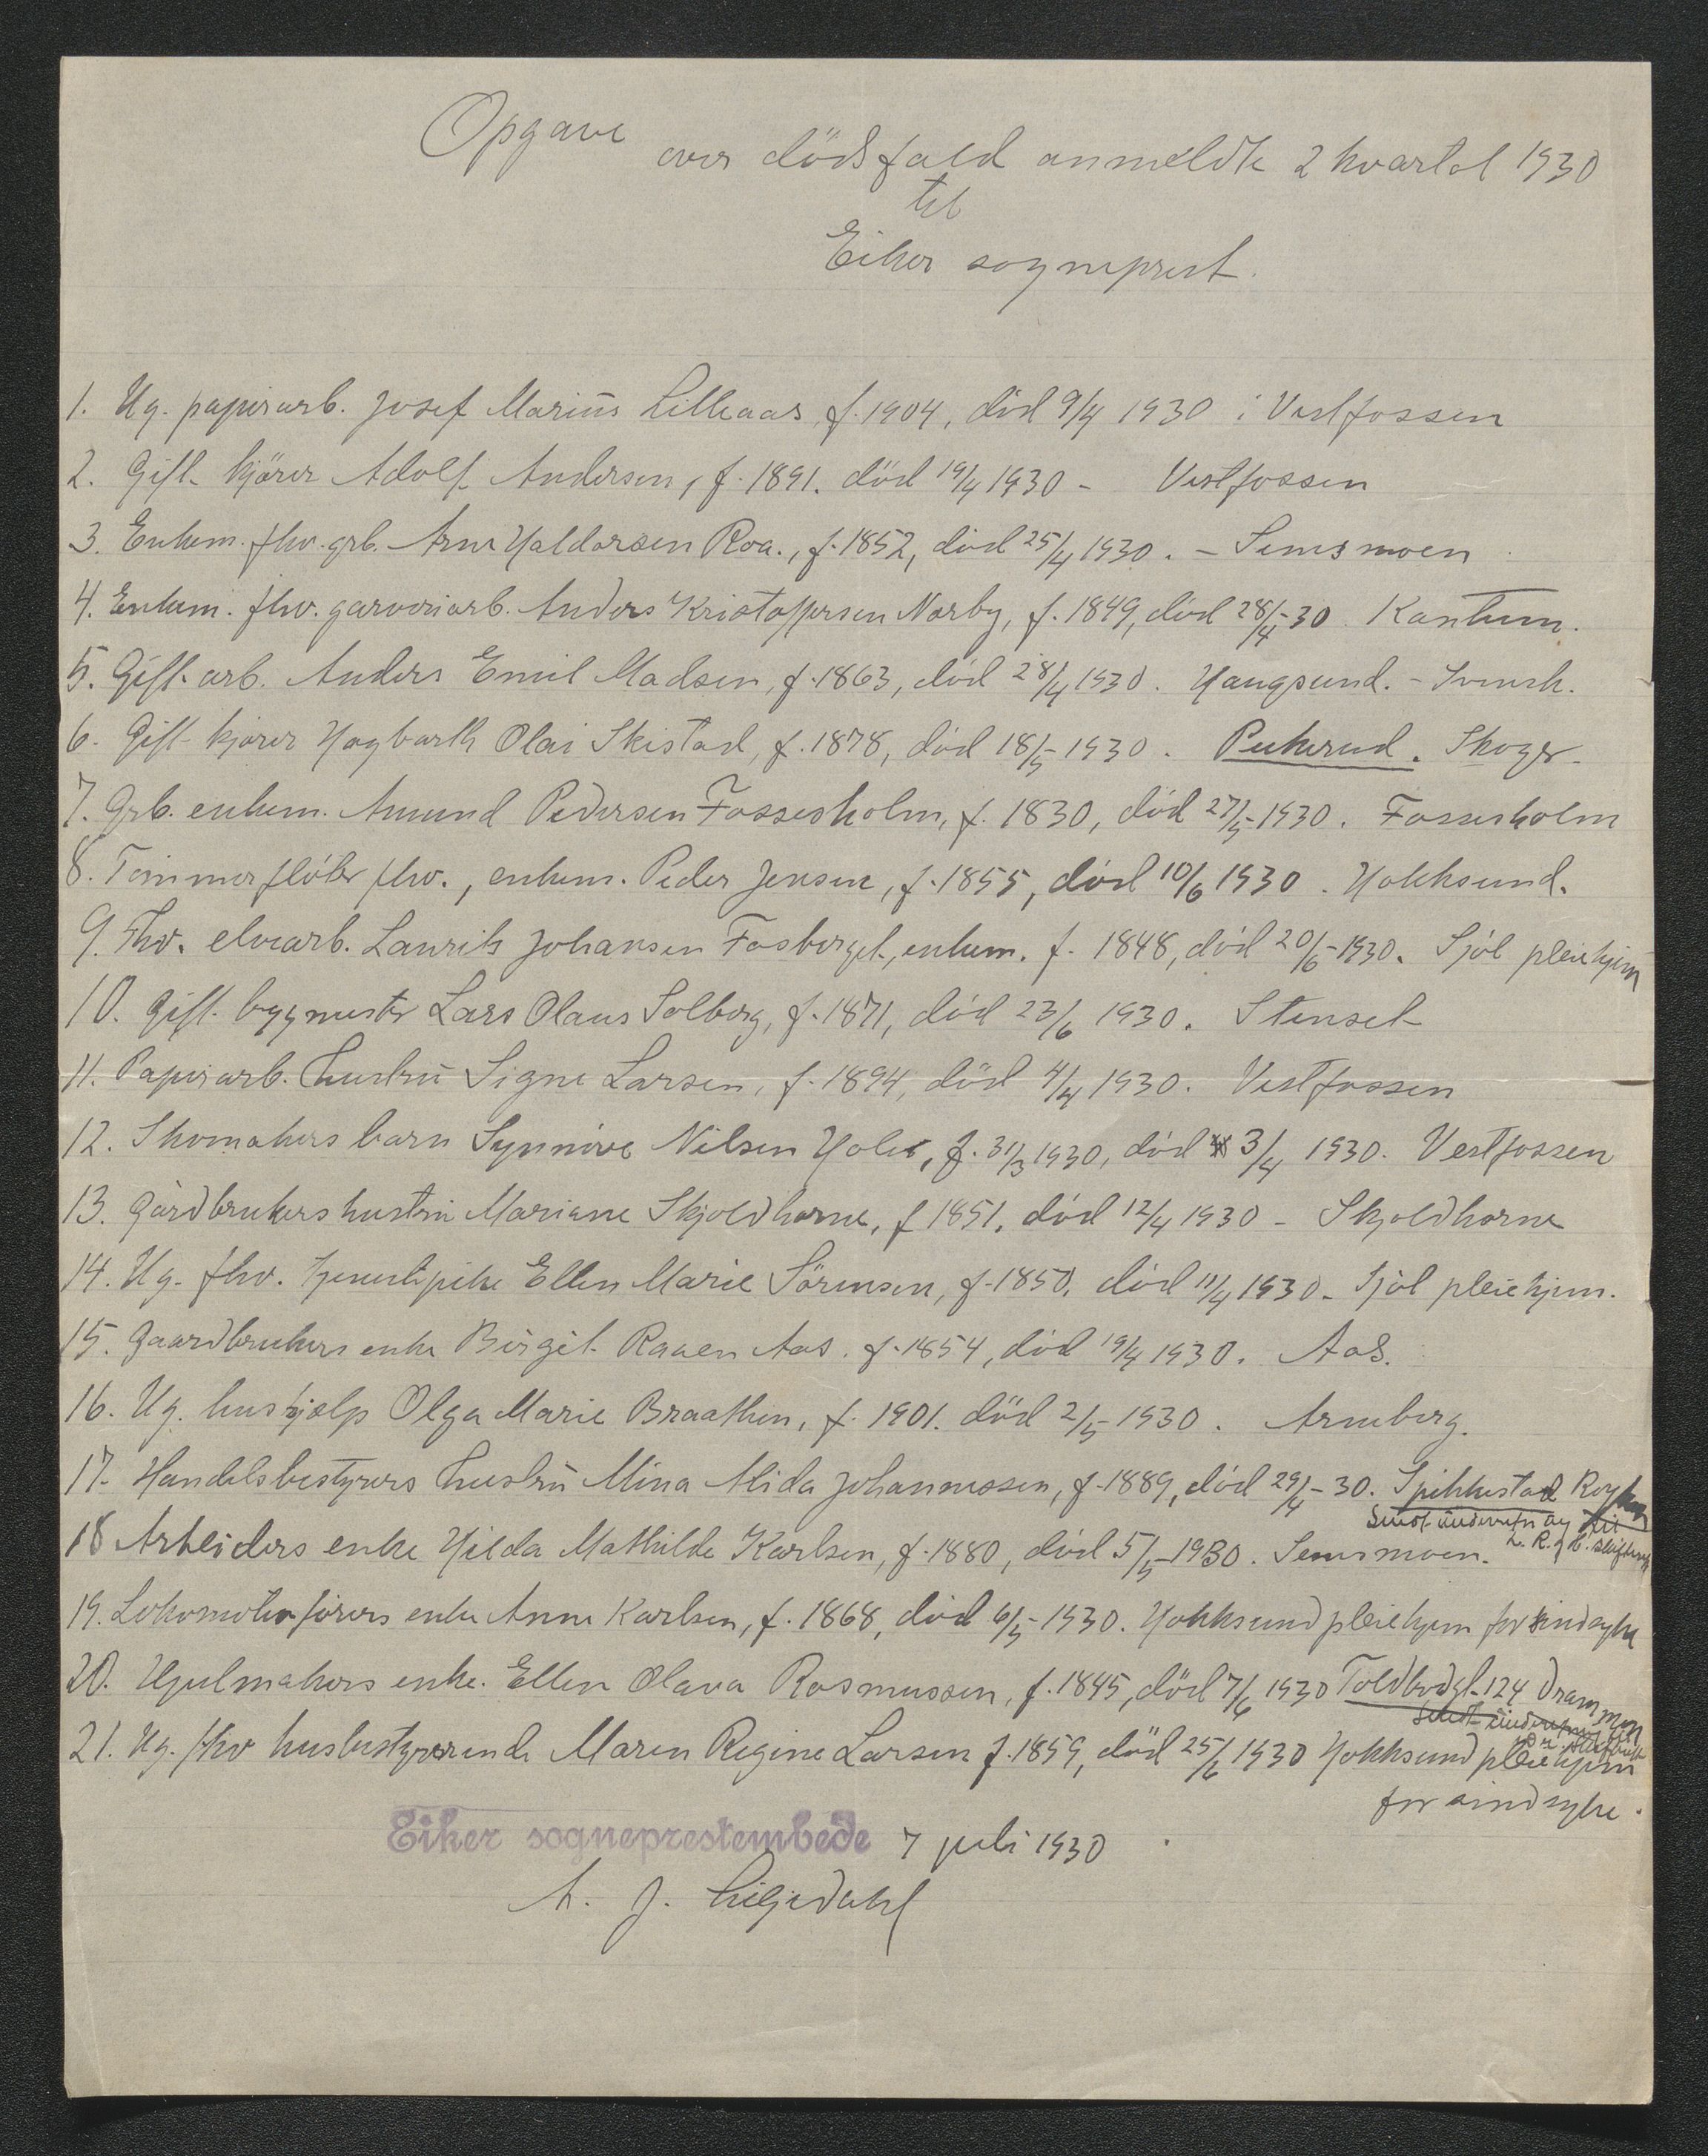 Opgave
over dödsfald anmeldte 2 kvartal 1930
til
Eiker sogneprest.
1. Ug. papirarb. Josef Marius Lilleaas, f. 1904, död 9/4 1930 i Vestfossen
2. Gift kjörer Adolf Andersen, f. 1891. död 19/4 1930 - Vestfossen
3. Enkem. fhv. grb. Arne Haldorsen Roa., f. 1852, död 25/4 1930. - Semsmoen
4. Enkem. fhv. garveriarb. Anders Kristoffersen Norby, f. 1849, död 28/4-30. Kantum.
5. Gift arb. Anders Emil Madsen, f. 1863, död 28/4 1930. Haugsund. - Svensk.
6. Gift kjører Hagbarth Olai Skistad, f. 1878, död 18/5-1930. Pukerud. Skoger
7. Grb. enkem. Amund Pedersen Fossesholm, f. 1830, död 27/5-1930. Fossesholm
8. Tømmerfløter fhv., enkem. Peder Jensen, f. 1855, död 10/6 1930. Hokksund.
9. Fhv. elvearb. Laurits Johansen Fosberget, enkem. f. 1848, död 20/6-1930. Sjöl pleiehjem
10. Gift. bygmester Lars Olaus Solberg, f. 1871, död 23/6 1930. Stenset
11. Papirarb. hustru Signe Larsen, f. 1894, död 4/4 1930. Vestfossen
12. Skomakers barn Synnöve Nilsen Hole, f. 31/3 1930, död 3/4 1930. Vestfossen
13. Gårdbrukers hustru Mariane Skjoldhorne, f 1851. död 12/4 1930 - Skjoldhorne
14. Ug. fhv. tjenestepike Ellen Marie Sörensen, f. 1850. död 11/4 1930 - Sjöl pleiehjem.
15. Gaardbrukers enke Birgit Raaen Aas. f. 1854, död 19/4 1930. Aas.
16. Ug. hushjelp Olga Marie Braathen, f. 1901. död 2/5-1930. Arneberg.
17. Handelsbestyrers hustru Mina Alida Johannessen, f. 1889, död 29/4-30. Spikkestad Røyken
18 Arbeiders enke Hilda Mathilde Karlsen, f. 1880, död 5/5-1930. Semsmoen.
19. Lokomotivførers enke Anne Karlsen, f. 1868, död 6/5-1930. Hokksund pleiehjem for sindsyke
20. Hjulmakers enke. Ellen Olava Rasmussen, f. 1845, död 7/6 1930 Toldbodgt. 124 Drammen
21. Ug. fhv husbestyrerinde Maren Regine Larsen f. 1859, död 25/6 1930 Hokksund pleiehjem
for sindsyke.
Eiker sogneprestembede 7 juli 1930
A. J. Liljedahl